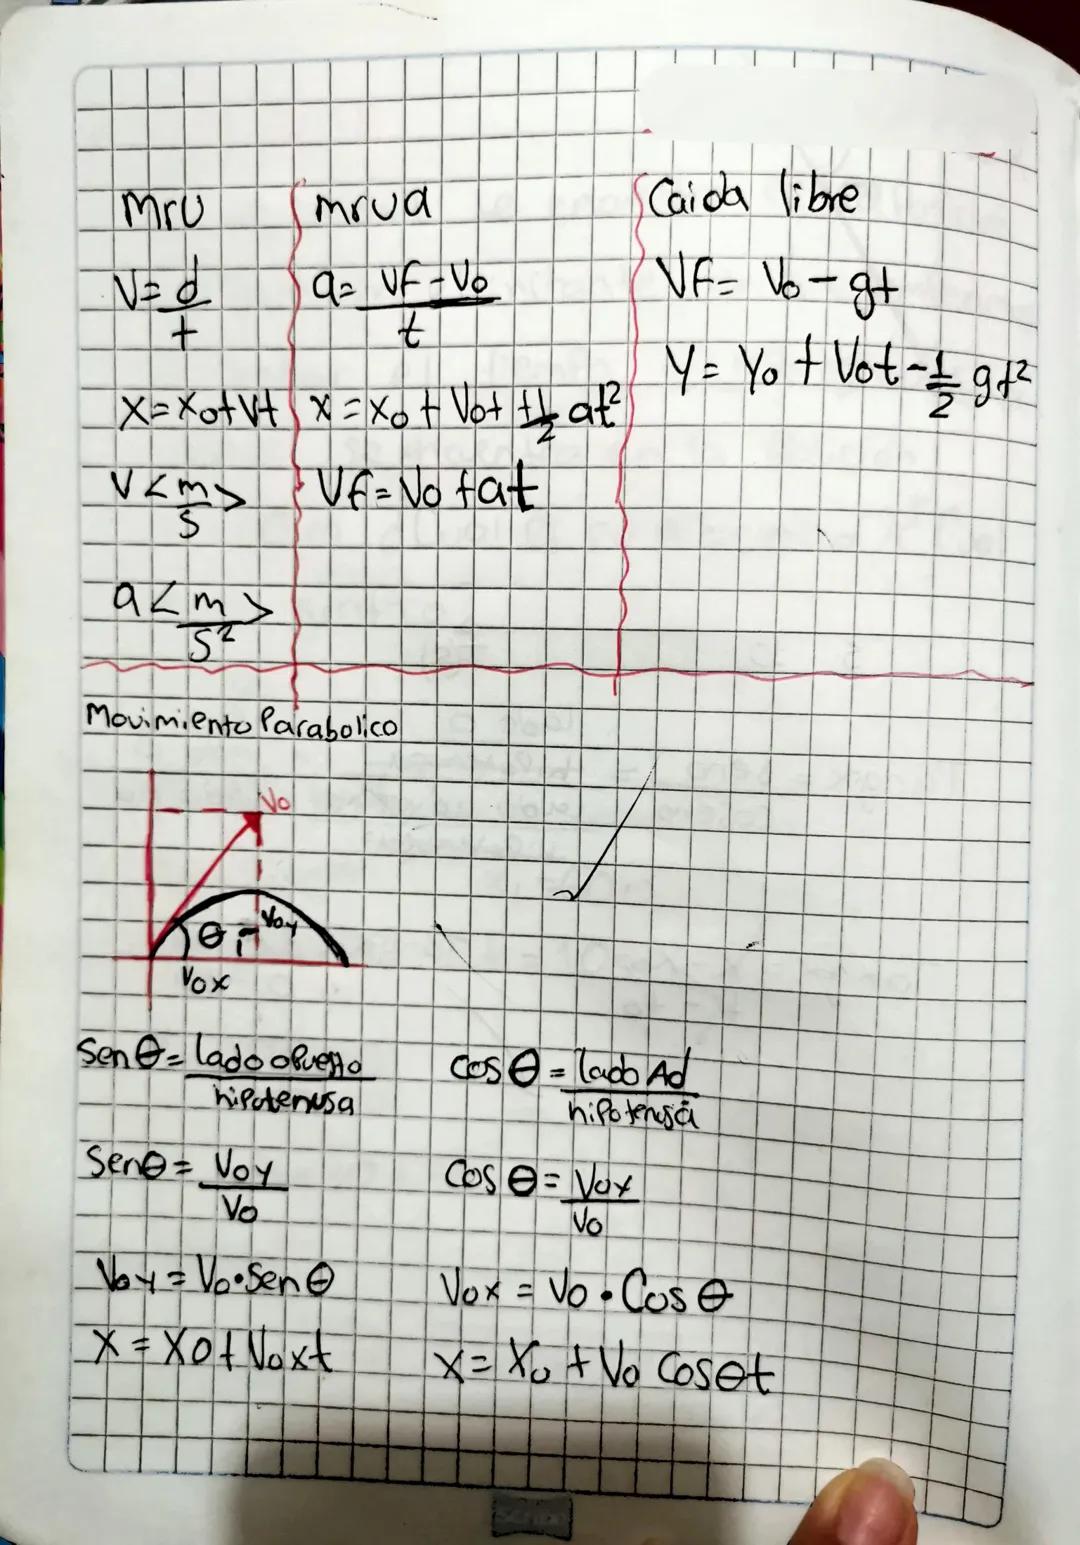 mru
V = d/t
x = x0 + vt
V <m/s>
a <m/s²>
mrua
a = Vf - V0/t
x = x0 + V0t + 1/2 at²
Vf = V0 + at
Caida libre
Vf = V0 - gt
Y = Y0 + V0t - 1/2 gt²
Movimiento Parabolico
V0
θ
V0y
V0x
Sen θ = lado opuesto/hipotenusa
Cos θ = lado Ad/hipotenusa
Sen θ = V0y/V0
Cos θ = V0x/V0
V0y = V0 • Sen θ
V0x = V0 • Cos θ
X = X0 + V0xt
X = X0 + V0 Cos θt